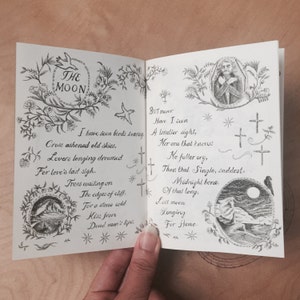 THE
MOON
I have seen birds
Cross autumnal old skies,
Lovers longing drowned
For love's last sigh.
Trees waiting on
The edges of cliff
For a stone cold
Kiss from
Dead man's lips.
But never
Have I seen
A lonelier sight,
Nor one that harms!
No fuller cry,
Than that Single, saddest
Midnight born
Of that long,
Lost moon
Longing
For Home.